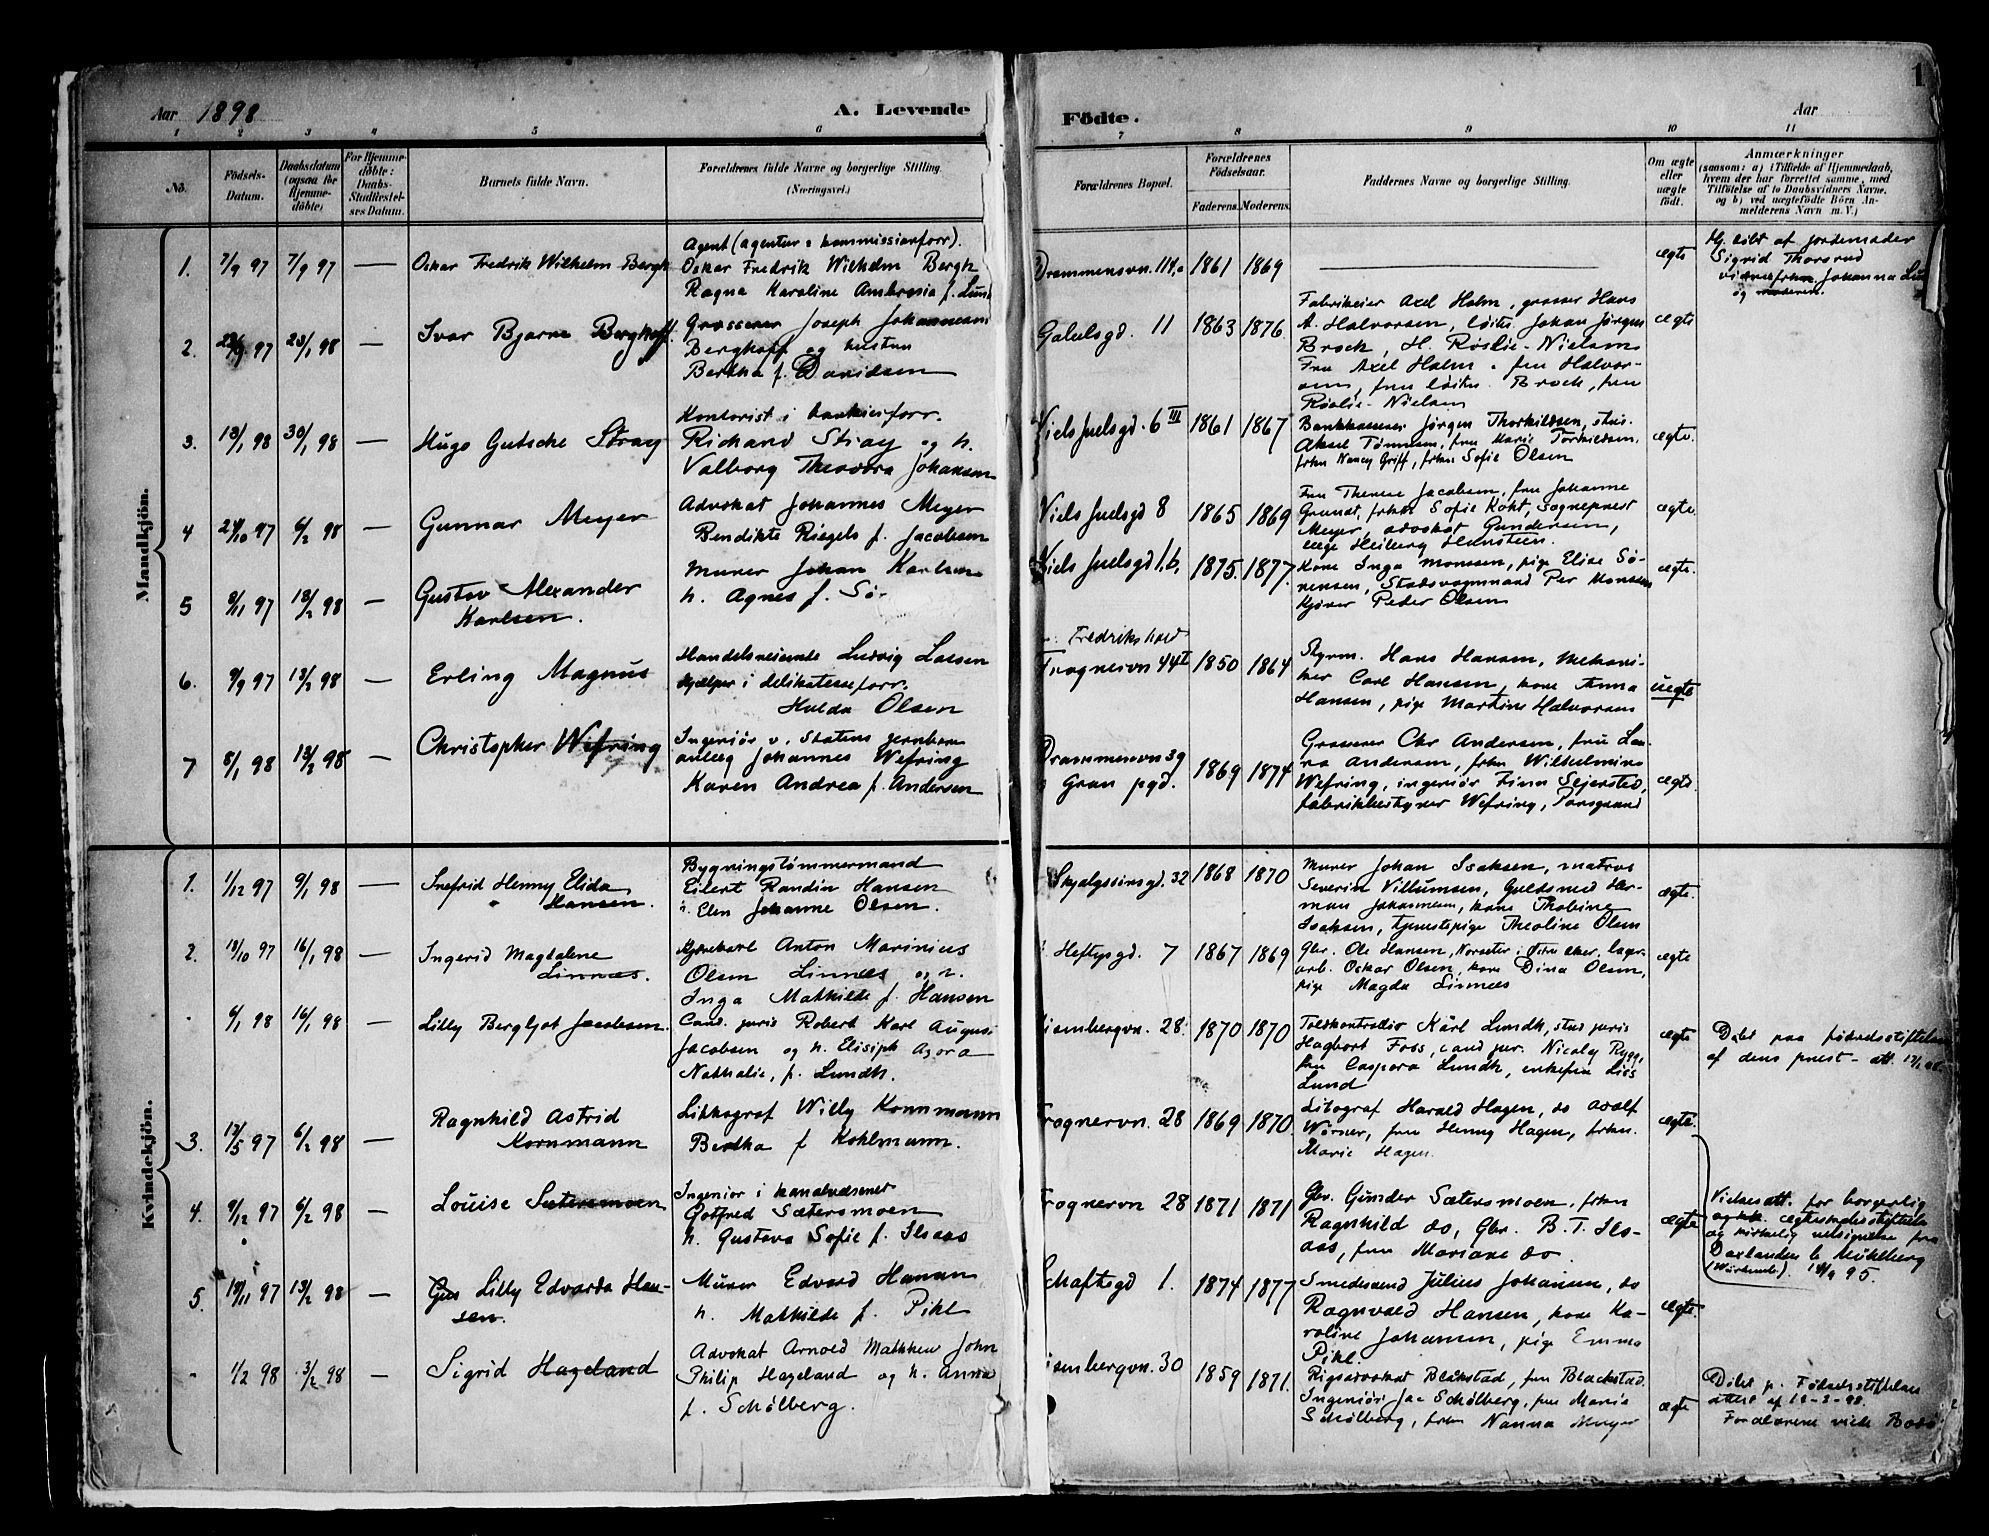 Aar 1898
A. Levende
Födte.
Aar
1
1 2 3 4 5 6
7 8 9 10 11
No.
Födsels-
Datum.
Daabsdatum
(ogsaa for
Hjemme-
döbte)
For Hjemme-
döbte:
Daabs-
Stadfæstel-
ses Datum.
Barnets fulde Navn.
Forældrenes fulde Navne og borgerlige Stilling.
(Næringsvei.)
Forældrenes Bopæl.
Forældrenes
Födselsaar.
Faderens. Moderens.
Faddernes Navne og borgerlige Stilling.
Om ægte
eller
uægte
født.
Anmærkninger
(saasom: a) i Tilfælde af Hjemmedaab,
hvem der har forrettet samme, med
Tilföielse af to Daabsvidners Navne,
og b) ved uægtefödte Börn An-
melderens Navn m. V.)
Mandkjön.
1. 7/9 97 7/9 97 — Oskar Fredrik Wilhelm Bergh
Agent (agentur & kommissionforr).
Oskar Fredrik Wilhelm Bergh
Ragna Karoline Ambrosia f. Lund
Drammensvn. 114a 1861 1869
ægte
Hj. døbt af jordemoder
Sigrid Thorsrud
Johanna
og moderen.
2. 97 23/1 98 — Ivar Bjarne Berghoff
Grosserer Joseph Johanneson
Berghoff og hustru
Bertha f. Davidsen
Gabelsgd. 11 1863 1876
Fabrikeier Axel Holm, grosser Hans
A. Halvorsen, løitn. Johan Jørgen
Brock, H. Røslie-Nielsen
Fru Axel Holm, fru Halvor-
sen, fru løitn. Brock, fru
Røslie-Nielsen
ægte
3. 13/1 98 30/1 98 — Hugo Gutsche Stray
Kontorist i bankierforr.
Richard Stray og h.
Valborg Theodora Johansen
Niels Juelsgd. 6 III 1861 1867
Bankkasserer Jørgen Thorkildsen, stud.
Aksel Tønnesen, fru Marie Torkildsen,
frkn Nancy Griff, frkn Sofie Olsen
ægte.
4 24/10 97 6/2 98 — Gunnar Meyer
Advokat Johannes Meyer
Bendikte Riegels f. Jacobsen
Niels Juelsgd 8 1865 1869
Fru Therese Jacobsen, fru Johanne
Grundt, frkn Sofie Koht, sogneprest
Meyer, advokat Gundersen,
læge Heiberg Hansteen.
ægte.
5 8/11 97 13/2 98 — Gustav Alexander
Karlsen.
Murer Johan Karlsen
h. Agnes f. Sø-
Niels Juelsgd 1.b, 1875. 1877.
Kone Inga Monsen, pige Elise Sø-
rensen, Stadsvognmand Per Monsen
Kjører Peder Olsen
ægte.
6. 9/9 97 13/2 98 — Erling Magnus
Handelsreisende Ludvig Larsen
hjælper i delikatesseforr.
Hulda Olsen
Fredrikshald
Frognervn 44 I 1850 1864
Styrm. Hans Hansen, mekani-
ker Carl Hansen, kone Anna
Hansen, pige Martine Halvorsen
uægte
7 8/1 98 13/2 98 — Christopher Wefring
Ingeniør v. Statens jernbane
anlæg Johannes Wefring
Karen Andrea f. Andersen
Drammensvn 39
Gran pgd. 1869 1874
Grosserer Chr Andersen, fru Lau-
ra Andersen, frkn Wilhelmine
Wefring, ingeniør Finn Sejersted,
fabrikbestyrer Wefring, Porsgrund
ægte
Kvindekjön.
1. 1/12 97 9/1 98 — Inefrid Henny Elida
Hansen.
Bygningstømmermand
Eilert Randin Hansen
h. Elen Johanne Olsen.
Skjalgssönsgd. 32 1868 1870
Murer Johan Isaksen, matros
Severin Villumsen, Guldsmed Her-
man Johannesen, kone Thobine
Isaksen, tjenestepige Theoline Olsen
ægte.
2. 13/10 97 16/1 98 — Ingerid Magdalene
Linnæs.
Kjørekarl Anton Marinius
Olsen Linnæs og h.
Inga Mathilde f. Hansen
Heftyegd. 7 1867 1869
Gbr. Ole Hansen, Norseter, lager-
arb. Oskar Olsen, kone Dina Olsen,
pige Magda Linnæs
ægte
- 6/1 98 16/1 98 — Lilly Bergljot Jacobsen.
Cand. juris Robert Karl August
Jacobsen og h. Elisiph Agora
Nathalie, f. Lundh.
28. 1870 1870
Toldkontrollør Karl Lundh, stud juris
Hagbart Foss, cand jur. Nicolay Rygg,
fru Caspara Lundh, enkefru
Lund
ægte
Døbt paa fødselsstiftelsen
af dens prest - att.
3. 13/5 97 6/2 98 — Ragnhild Astrid
Kornmann
Lithograf Willy Kornmann
Bertha f Kohlmann.
Frognervn. 28 1869 1870.
Litograf Harald Hagen, do Adolf
Wörner, fru Henny Hagen, frkn.
Marie Hagen.
ægte.
Vielsesatt. for borgerlig
ægteskabsstiftelse
og kirkelig velsignelse fra
Daxlanden b. Mühlberg
95.
4. 9/12 97 6/2 98 — Louise Sætersmoen
Ingeniør i kanalvæsenet
Gotfred Sætersmoen
h. Gustava Sofie f. Ilsaas
Frognervn 28 1871 1871
Gbr. Gunder Sætersmoen, frkn
Ragnhild do, Gbr. B. T. Ils-
aas, fru Mariane do.
ægte
5. 97 13/2 98 — Lilly Edvarda Han-
sen.
Murer Edvard Hansen
h. Mathilde f. Pihl
Schaftesgd 1. 1874 1877
Smedesvend Julius Johansen, do
Ragnvald Hansen, kone Ka-
roline Johansen, pige Emma
Pihl.
ægte
- 1/2 98 3/2 98 — Sigrid Hageland
Advokat Arnold Matthew John
Philip Hageland og h. Anna
f. Schölberg.
30 1859 1871.
Rigsadvokat Blakstad, fru Blackstad.
Ingeniör Jac Schölberg, fru Marie
Schölberg, frkn Nanna Meyer
ægte
Døbt p. Fødselsstiftelsen
Forældrene viede Bodø